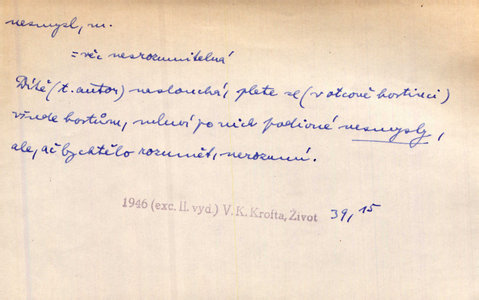 nesmysl, m.
= věc nesrozumitelná
Dítě (t. autor) neslouchá, plete se (v otcově hostinci)
všude hostům, mluví po nich podivné nesmysly,
ale, ač by chtělo rozumět, nerozumí.
1946 (exc. II. vyd.) V. K. Krofta, Život 39, 15